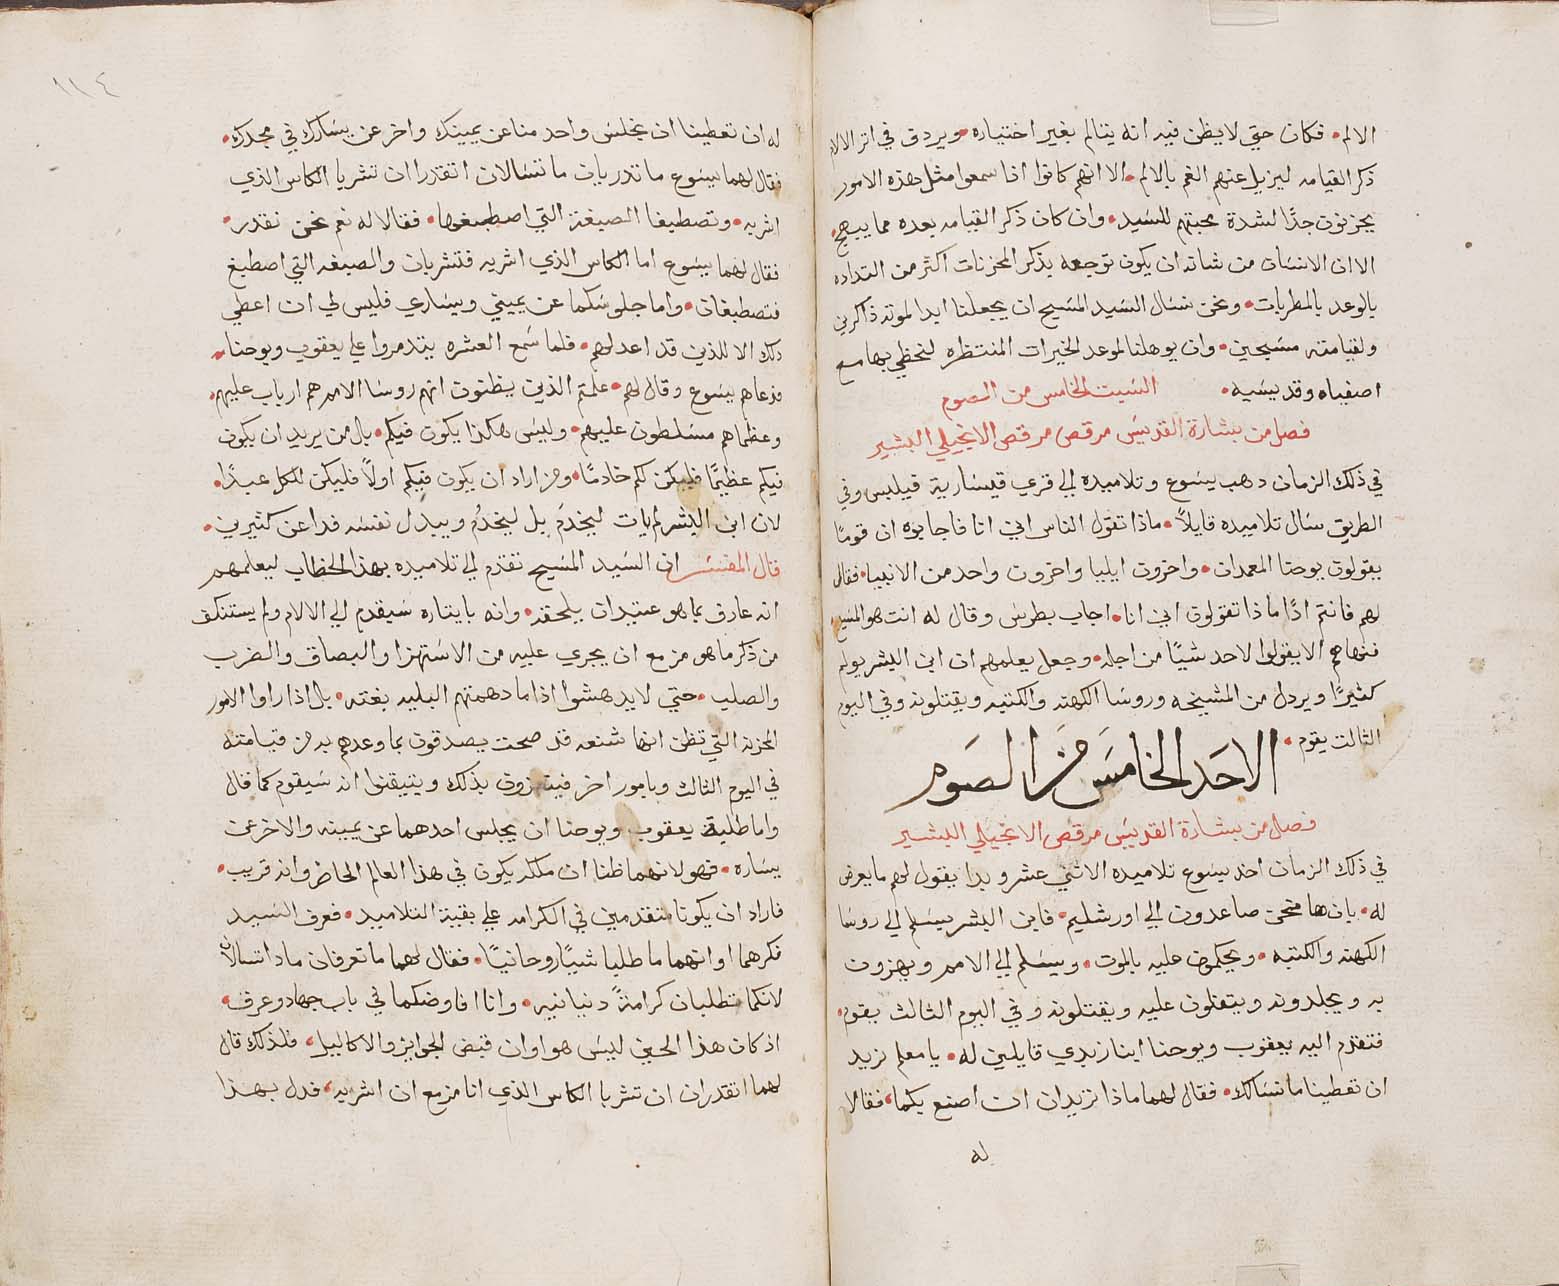 الالم. فكان حتي لا يظن فيه انه يتالم بغير اختياره. ويردف في اثر الالام
ذكر القيامه ليزيل عنهم الغم بالالم. الا انهم كانوا اذا سمعوا مثل هذه الامور
يحزنون جدًا لشدة محبتهم للسيد. وان كان ذكر القيامه بعده مما يبهج.
الا ان الانسان من شانه ان يكون توجعه بذكر المحزنات اكثر من التداده
بالوعد بالمطربات. ونحن نسال السيد المسيح ان يجعلنا ابدا لموته ذاكرين
ولقيامته مسبحين. وان يوهلنا لموعد الخيرات المنتظره لنحظي بها مع
اصفياه وقديسيه. السبت الخامس من الصوم
فصل من بشارة القديس مرقص مرقص الانجيلي البشير
في ذلك الزمان دهب يسوع وتلاميده الي قري قيسارية فيلبس وفي
الطريق سال تلاميده قايلاً. ماذا تقول الناس اني انا فاجابوه ان قومًا
يقولون يوحنا المعمدان. واخرون ايليا واخرون واحد من الانبيا. فقال
لهم فانتم اذًا ماذا تقولون اني انا. اجاب بطرس وقال له انت هو المسيح
فنهاهم الا يقولوا لاحد شيًا من اجله. وجعل يعلمهم ان ابن البشر يولم
كثيرًا ويردل من المشيخه وروسا الكهنه والكتبه ويقتلونه وفي اليوم
الثالث يقوم.
الاحد الخامس من الصوم
فصل من بشارة القديس مرقص الانجيلي البشير
في ذلك الزمان اخد يسوع تلاميده الاثني عشر وبدا يقول لهم ما يعرض
له. بان ها نحن صاعدون الي اورشليم. فابن البشر يسلم الي روسا
الكهنه والكتبه. ويحكمون عليه بالموت. ويسلم الي الامم ويهزون
به ويجلدونه ويتفلون عليه ويقتلونه وفي اليوم الثالث يقوم.
فتقدم اليه يعقوب ويوحنا ابنا زبدي قايلين له. يا معلم نريد
ان تعطينا ما نسالك. فقال لهما ماذا تريدان ان اصنع بكما. فقالا
له
١١٤
له ان تعطينا ان يجلس واحد منا عن يمينك واخر عن يسارك في مجدك.
فقال لهما يسوع ما تدريان ما تسالان اتقدرا ان تشربا الكاس الذي
اشربه. وتصطبغا الصبغة التي اصطبغها. فقالا له نعم نحن نقدر.
فقال لهما يسوع اما الكاس الذي اشربه فتشربان والصبغه التي اصطبغ
فتصطبغان. واما جلوسكما عن يميني ويساري فليس لي ان اعطي
دلك الا للذين قد اعد لهم. فلما سمع العشره بتدمروا علي يعقوب ويوحنا.
فدعاهم يسوع وقال لهم. علمتم الذين يظنون انهم روسا الامم هم ارباب عليهم.
وعظماهم مسلطون عليهم. وليس هكذا يكون فيكم. بل من يريد ان يكون
فيكم عظيمًا فليكن لكم خادمًا. ومن اراد ان يكون فيكم اولاً فليكن للكل عبدًا.
لان ابن البشر لم يات ليخدَم بل ليخدُم ويبدل نفسه فدا عن كثيرين.
قال المفسر ان السيد المسيح تقدم الي تلاميده بهذا الخطاب ليعلمهم
انه عارف بما هو عتيد ان يلحقه. وانه بايثاره سيقدم الي الالام ولم يستنكف
من ذكر ما هو مزمع ان يجري عليه من الاستهزا والبصاق والضرب
والصلب. حتي لا يدهشوا اذا ما دهمتهم البليه بغته. بل اذا راوا الامور
المحزنه التي تظن انها شنعه قد صحت يصدقون بما وعدهم به من قيامته
في اليوم الثالث وبامور اخر بذلك ويتيقنوا انه سيقوم كما قال
واما طلبة يعقوب ويوحنا ان يجلس احدهما عن يمينه والاخر عن
يساره. فهو لانهما ظنا ان ملكه يكون في هذا العالم الحاضر وانه قريب.
فاراد ان يكونا متقدمين في الكرامه علي بقية التلاميد. فعرف السيد
فكرهما وانهما ما طلبا شيًا روحانيًا. فقال لهما ما تعرفان مادا تسالان
لانكما تطلبان كرامةً دنيانيه. وانا افاوضكما في باب جهاد وعرق.
اذ كان هذا الحين ليس هو اوان قبض الجوايز والاكاليل. فلذلك قال
لهما اتقدران ان تشربا الكاس الذي انا مزمع ان اشربه. فدل بهذا